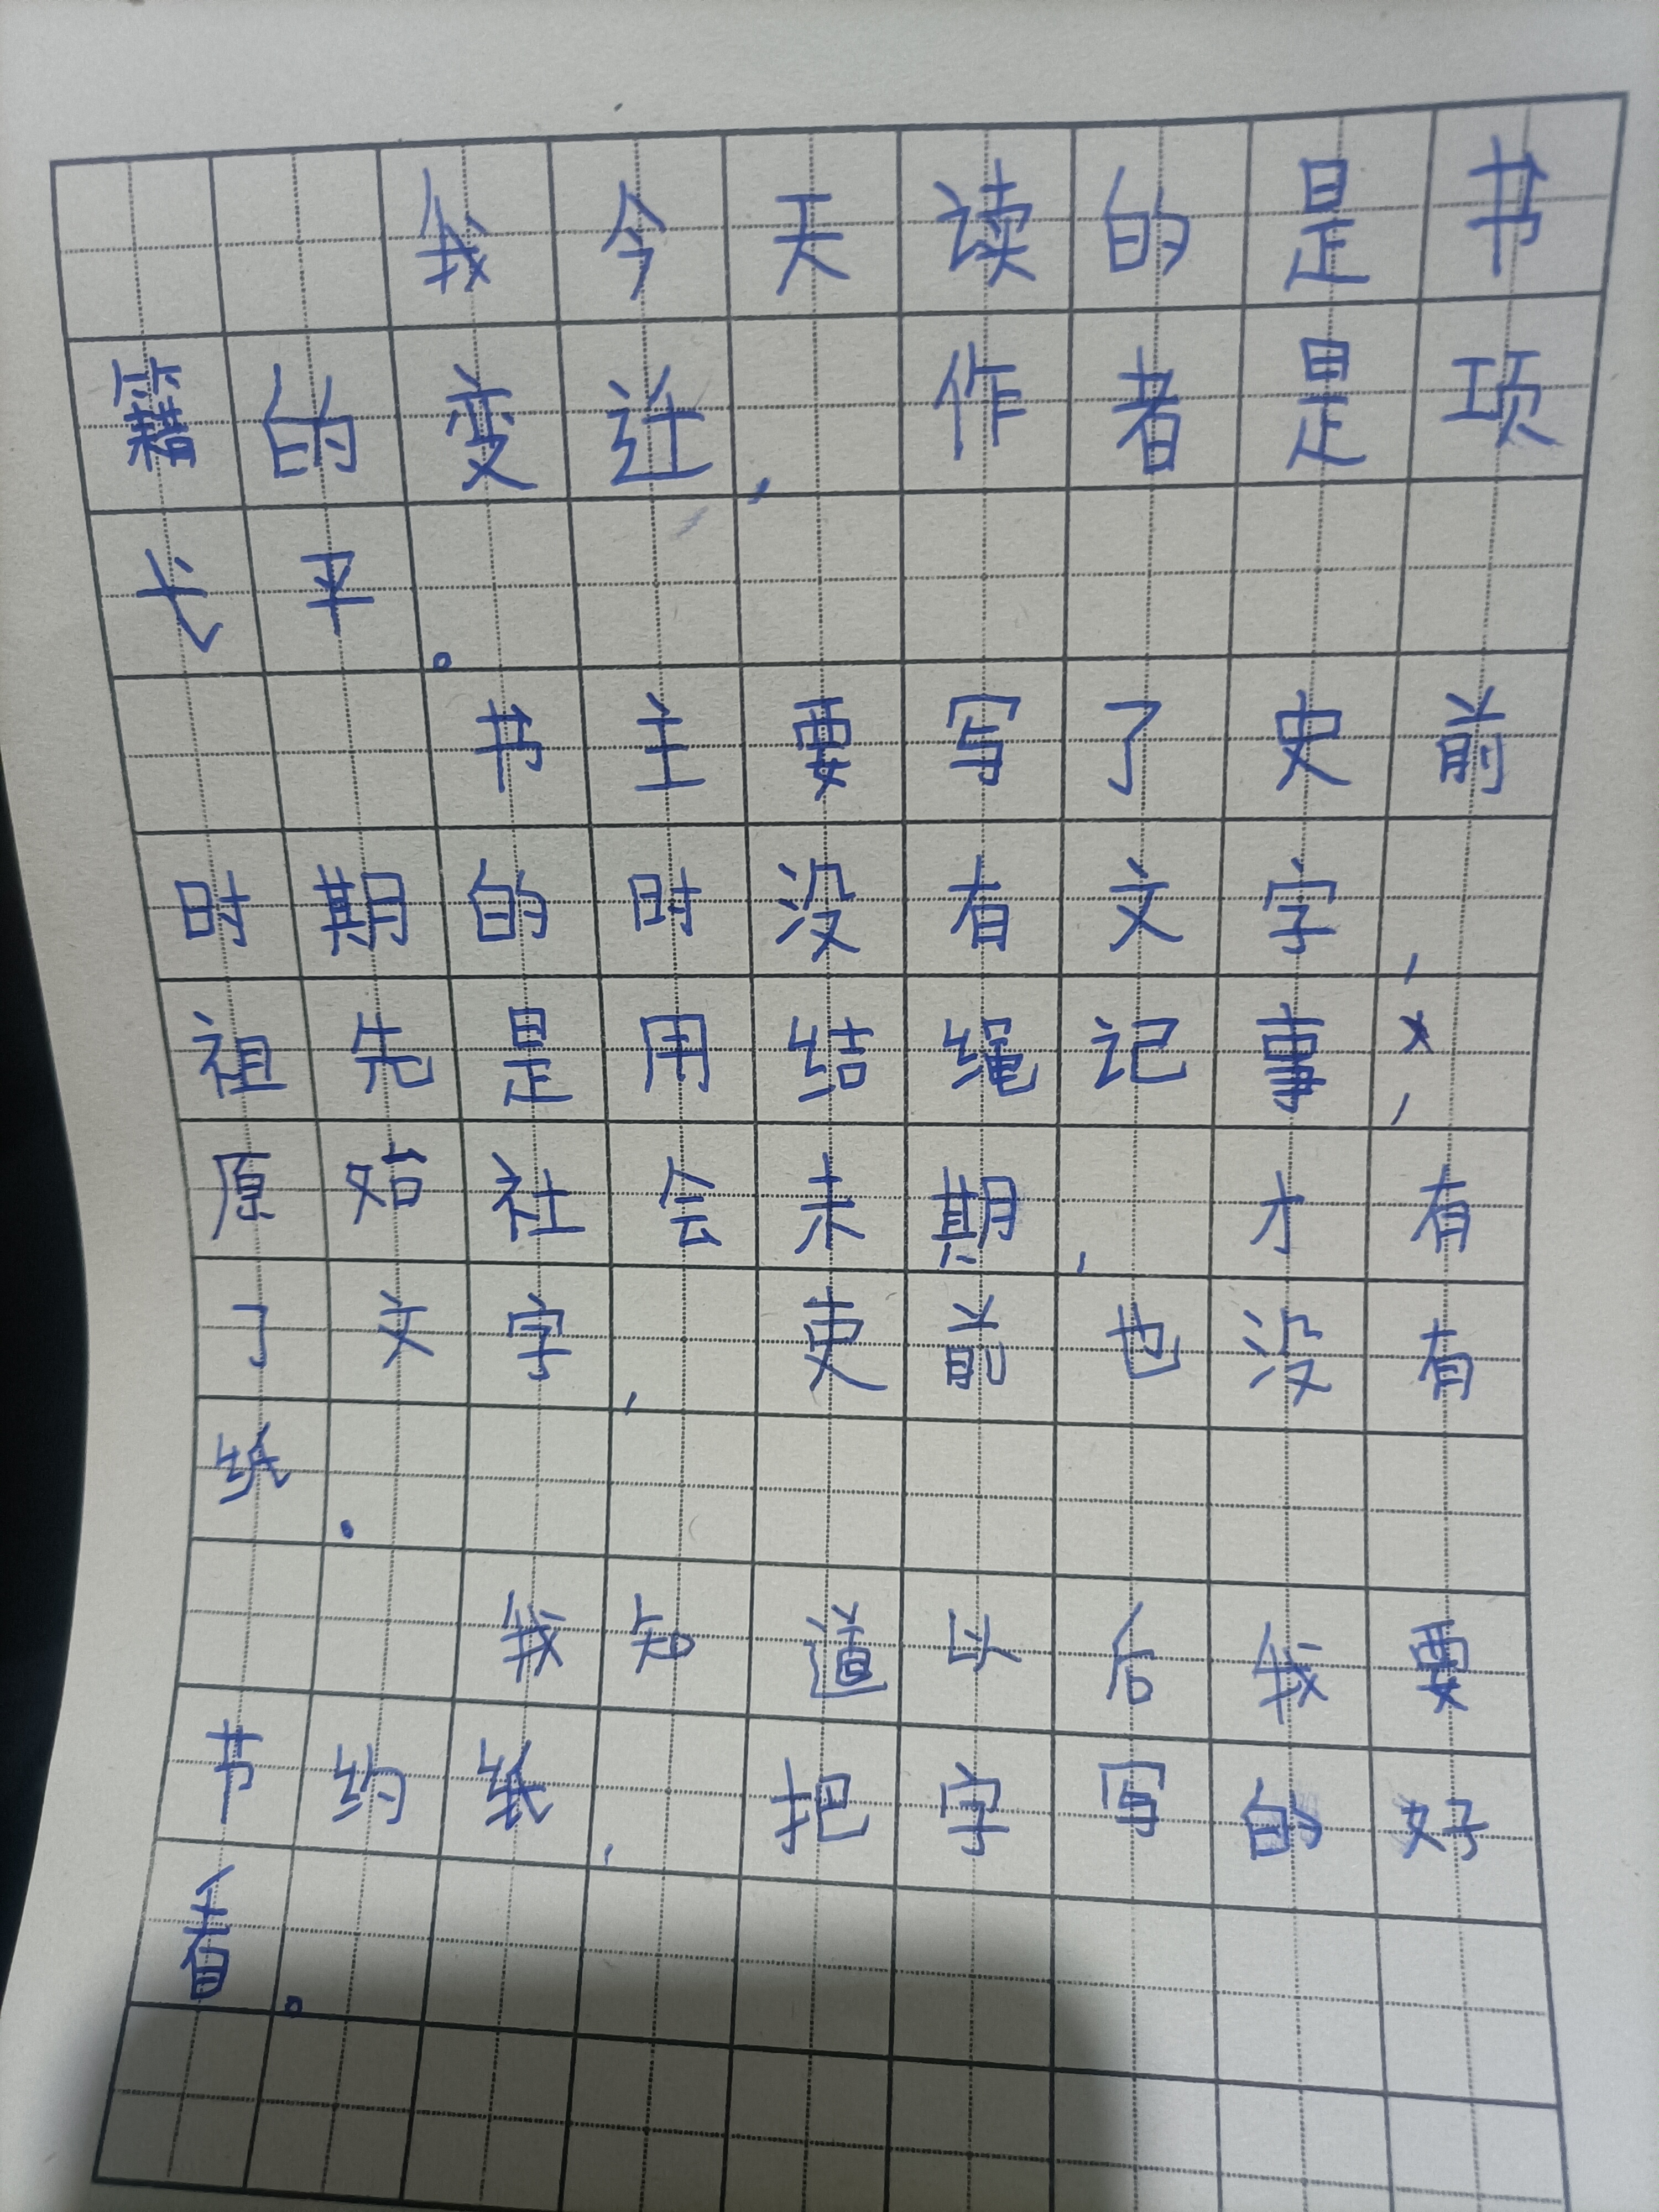 我今天读的是书
籍的变迁，作者是项
长平。
书主要写了史前
时期的时没有文字，
祖先是用结绳记事，
原始社会未期，才有
了文字，吏前也没有
纸.
我知道以后我要
节约纸，把字写的好
看。